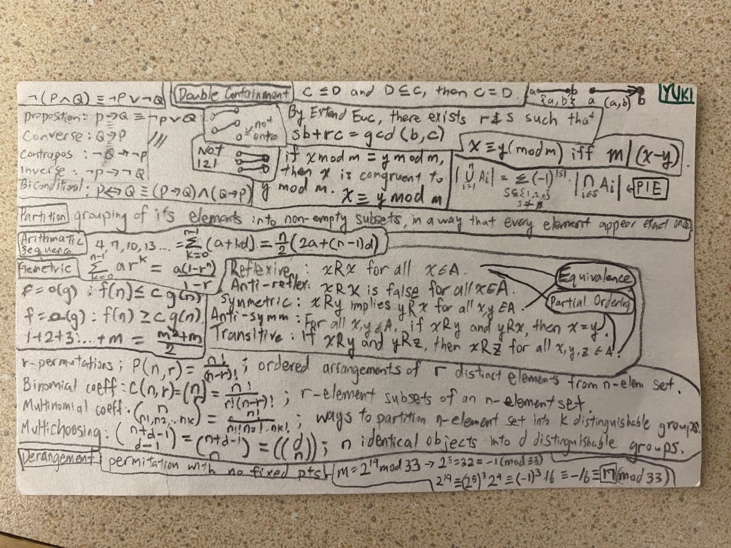 ¬(P∧Q) ≡ ¬P∨¬Q
Double Containment C⊆D and D⊆C, then C=D.
a b {a,b} a (a,b) b
YUKI
Proposition: P→Q ≡ ¬P∨Q
Converse: Q→P
Contrapos: ¬Q→¬P
Inverse: ¬P→¬Q
Biconditional: P↔Q ≡ (P→Q)∧(Q→P)
not onto
Not 1:1
By Extend Euc, there exists r&s such that
sb+rc = gcd(b,c)
x≡y(mod m) iff m|(x-y)
if x mod m = y mod m,
then x is congruent to
y mod m. x≡y mod m
|⋃Ai| = Σ(-1)|⋂Ai| ← PIE
Partition grouping of it's elements into non-empty subsets, in a way that every element appear exact once
Arithmatic Sequence 4, 7, 10, 13... = Σ(a+kd) = n/2(2a+(n-1)d)
Geometric Σ ar^k = a(1-r^n)/1-r
f=O(g): f(n)≤c g(n)
f=Ω(g): f(n)≥c g(n)
1+2+3...+m = m²+m/2
Reflexive: xRx for all x∈A.
Anti-reflex: xRx is false for all x∈A.
Symmetric: xRy implies yRx for all x,y∈A
Anti-symm: For all x,y∈A, if xRy and yRx, then x=y.
Transitive: if xRy and yRz, then xRz for all x,y,z∈A.
Equivalence
Partial Ordering
r-permutations: P(n,r) = n!/(n-r)!; ordered arrangements of r distinct elements from n-elem set.
Binomial coeff: C(n,r) = (n r) = n!/r!(n-r)!; r-element subsets of an n-element set.
Multinomial coeff: (n n1,n2,..nk) = n!/n1!n2!..nk!; ways to partition n-element set into k distinguishable groups.
Multichoosing: (n+d-1 d-1) = (n+d-1 n) = ((d n)); n identical objects into d distinguishable groups.
Derangement permitation with no fixed pts!
m=2^19 mod 33 → 2^5=32=-1(mod 33)
2^19≡(2^5)^3 2^4≡(-1)^3·16≡-16≡17(mod 33)